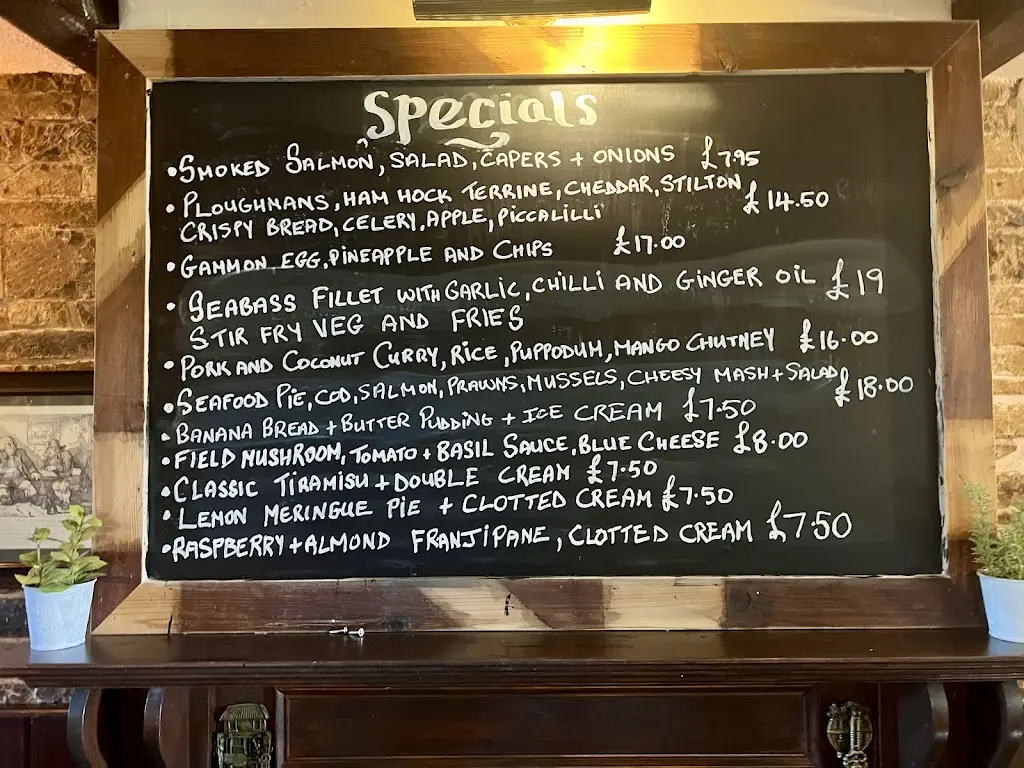 Specials
• SMOKED SALMON, SALAD, CAPERS + ONIONS £7.95
• PLOUGHMANS, HAM HOCK TERRINE, CHEDDAR, STILTON, £14.50
CRISPY BREAD, CELERY, APPLE, PICCALILLI
• GAMMON, EGG, PINEAPPLE AND CHIPS £17.00
• SEABASS FILLET WITH GARLIC, CHILLI AND GINGER OIL £19
STIR FRY VEG AND FRIES
• PORK AND COCONUT CURRY, RICE, PUPPODUM, MANGO CHUTNEY £16.00
• SEAFOOD PIE, COD, SALMON, PRAWNS, MUSSELS, CHEESY MASH + SALAD £18.00
• BANANA BREAD + BUTTER PUDDING + ICE CREAM £7.50
• FIELD MUSHROOM, TOMATO + BASIL SAUCE, BLUE CHEESE £8.00
• CLASSIC TIRAMISU + DOUBLE CREAM £7.50
• LEMON MERINGUE PIE + CLOTTED CREAM £7.50
• RASPBERRY + ALMOND FRANJIPANE, CLOTTED CREAM £7.50